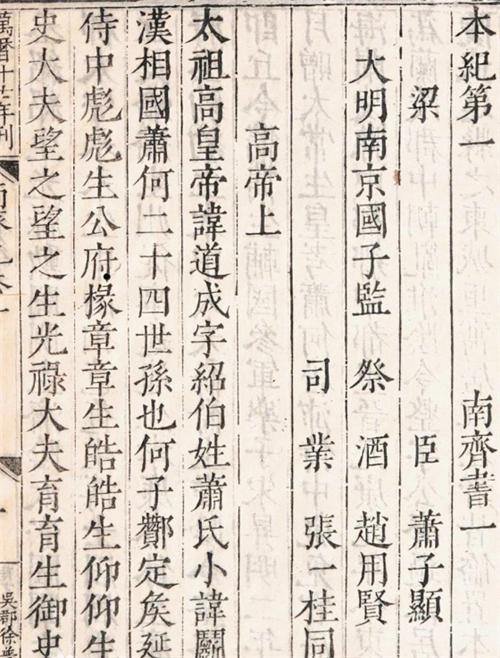 本紀第一 南齊書一
梁 臣 蕭子顯
大明南京國子監 祭 酒 趙用賢
司 業 張一桂同
高帝上
太祖高皇帝諱道成字紹伯姓蕭氏小諱鬭
漢相國蕭何二十四世孫也何子酇定矦延
侍中彪彪生公府掾章章生皓皓生仰仰生
史大夫望之望之生光祿大夫育育生御史
萬曆十七年刊
吳郡徐普